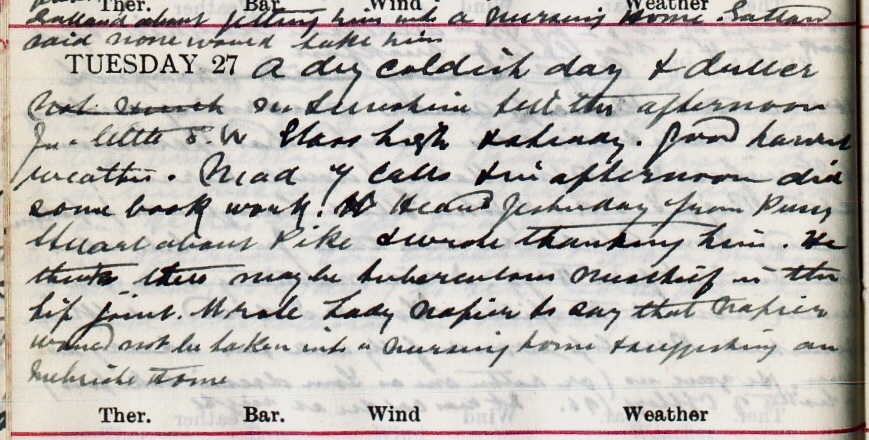 Ther. Bar. Wind Weather
about getting him into a Nursing Home.
said none would take him
TUESDAY 27 A dry coldish day & duller
Not much in Sunshine till the afternoon
In a little S.W Glass high & steady. Good harvest
weather. Mad 7 Calls & in afternoon did
some book work. Heard yesterday from Purves
Stuart about Pike & wrote thanking him. He
thinks there may be tuberculous mischief in the
hip joint. Wrote Lady Napier to say that Napier
would not be taken into a nursing home & suggesting an
Inebriate Home
Ther. Bar. Wind Weather